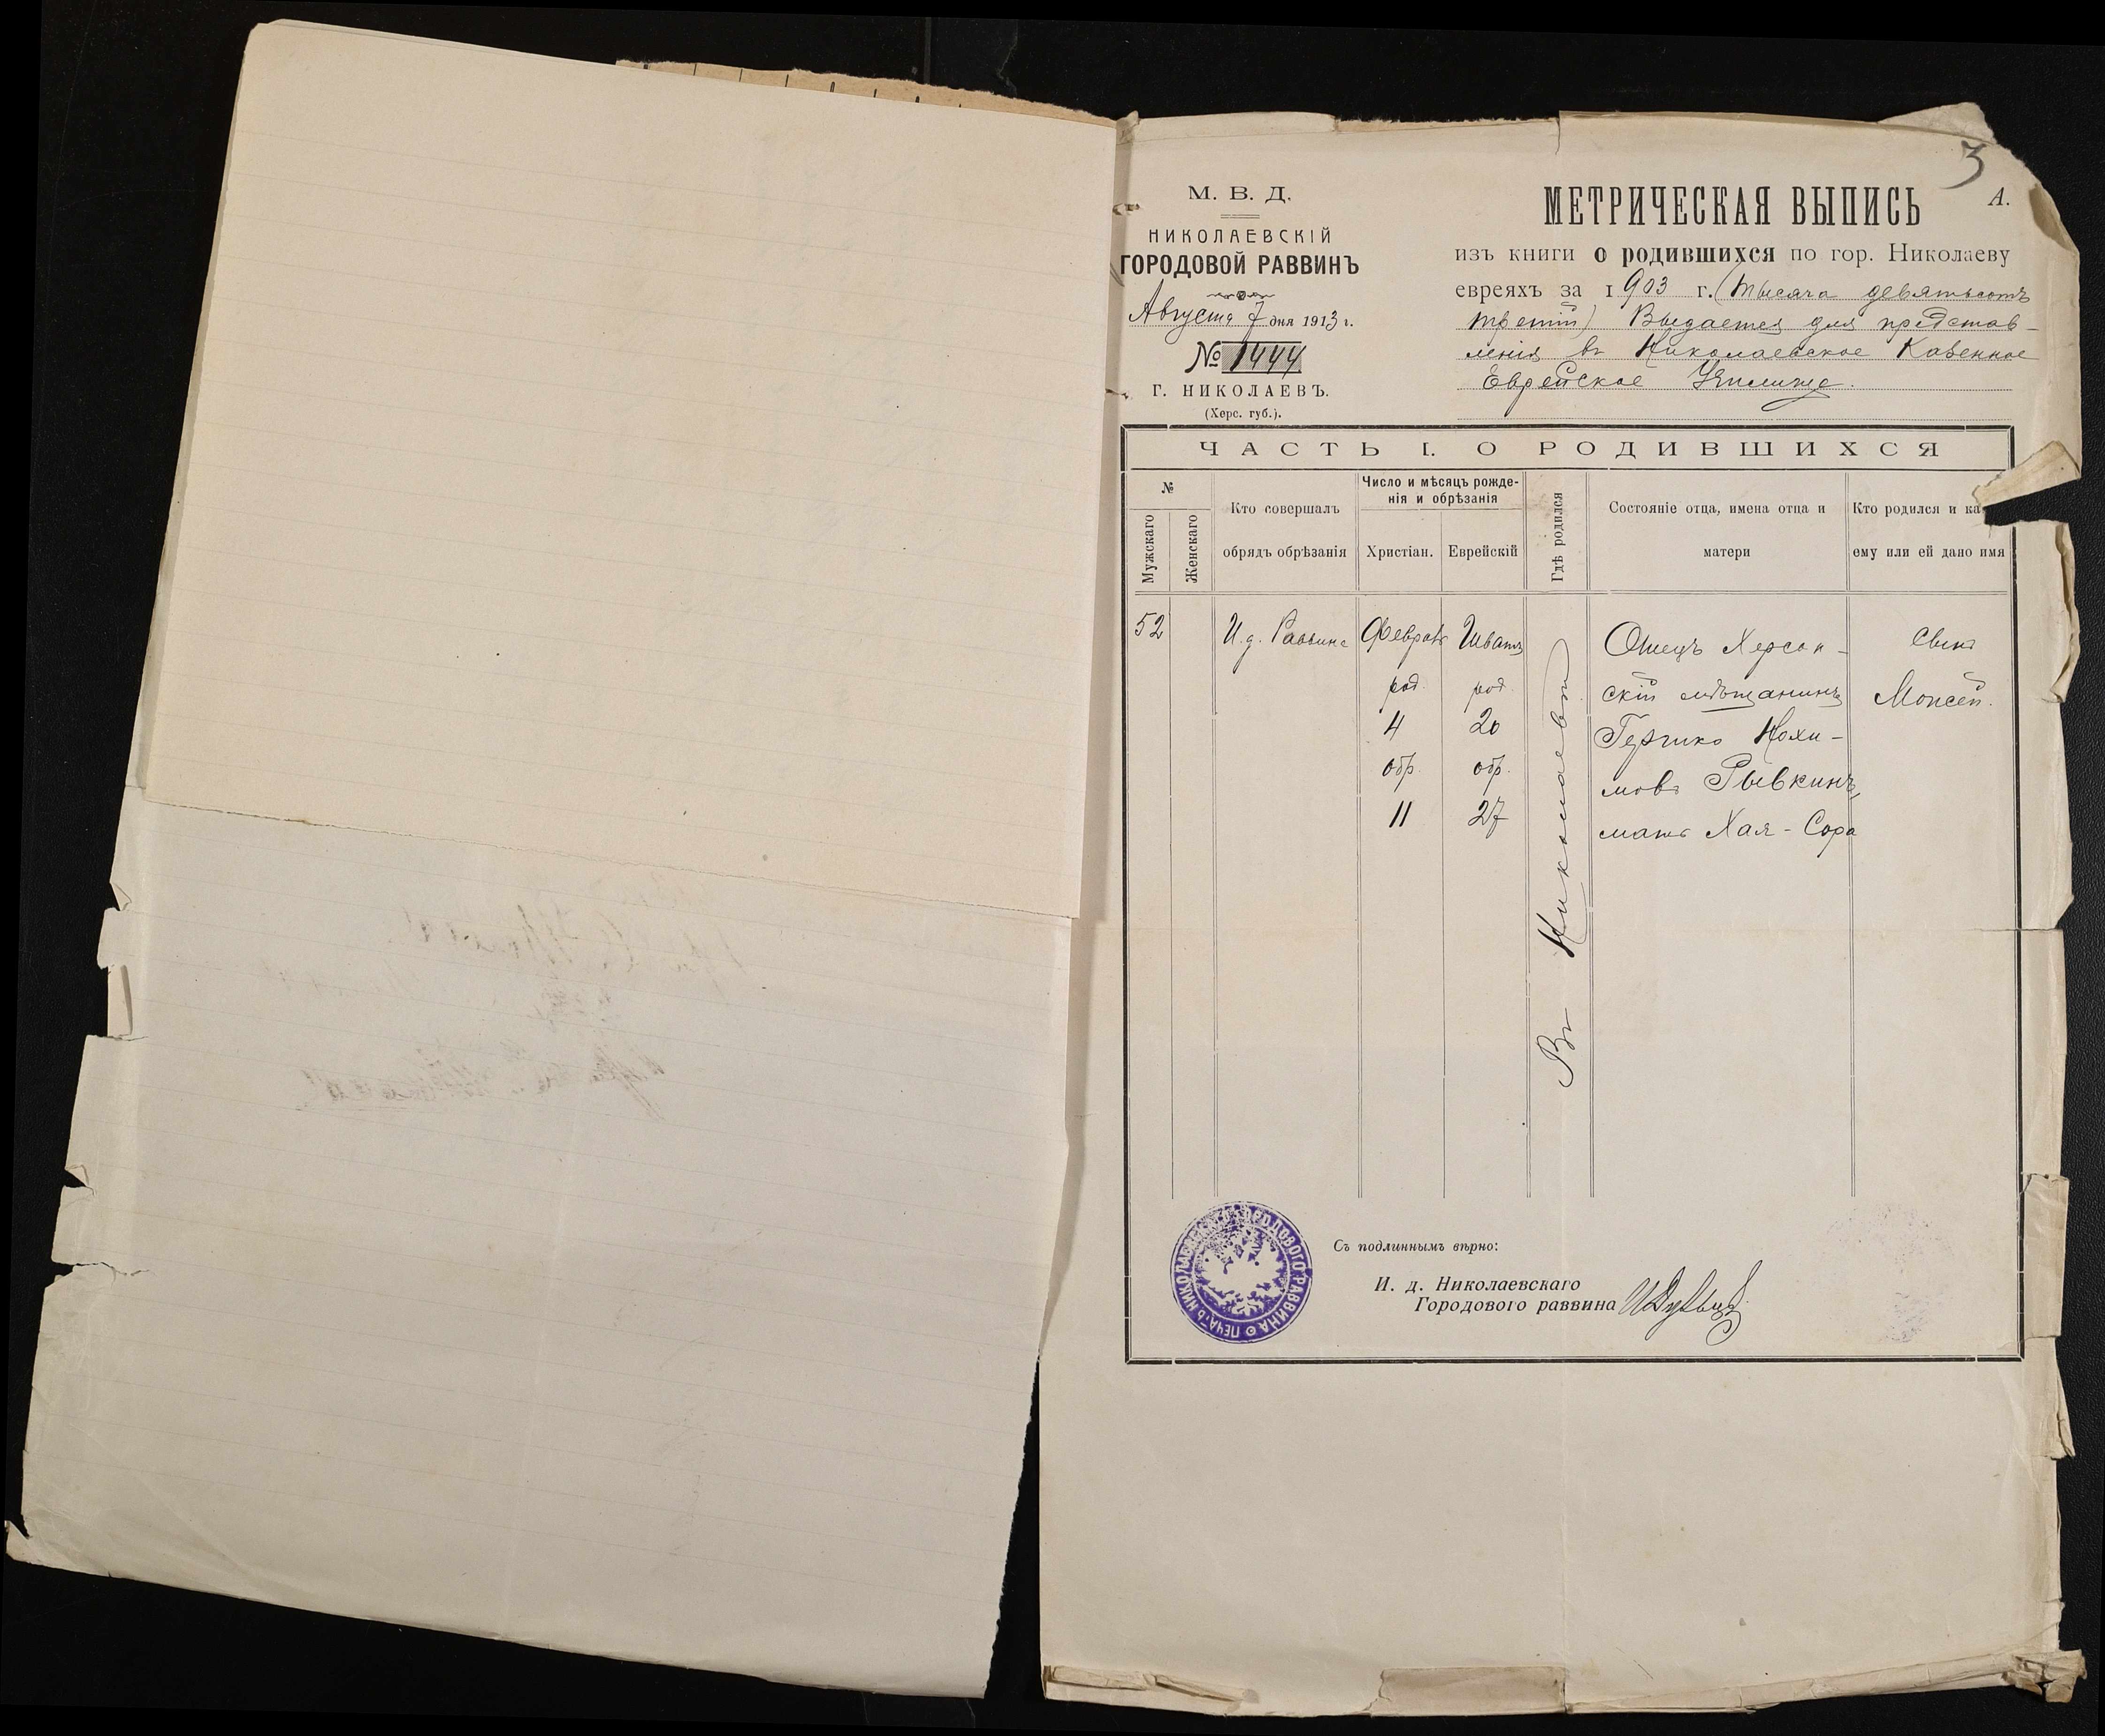 3
М. В. Д.
НИКОЛАЕВСКІЙ
ГОРОДОВОЙ РАВВИНЪ
Августа 7 дня 1913 г.
№ 1444
Г. НИКОЛАЕВЪ.
(Херс. губ.).
А.
МЕТРИЧЕСКАЯ ВЫПИСЬ
изъ книги о родившихся по гор. Николаеву
евреяхъ за 1903 г. (тысяча девятьсотъ
третій) Выдается для представ-
ленія въ Николаевское Казенное
Еврейское Училище.
ЧАСТЬ I. О РОДИВШИХСЯ
№
Мужскаго
Женскаго
Кто совершалъ
обрядъ обрѣзанія
Число и мѣсяцъ рожде-
нія и обрѣзанія
Христіан.
Еврейскій
Гдѣ родился
Состояніе отца, имена отца и
матери
Кто родился и ка
ему или ей дано имя
52
И. д. Раввина
Февраль
род.
4
обр.
11
Шватъ
род.
20
обр.
27
Въ Николаевѣ
Отецъ Херсон-
скій мѣщанинъ
Гершко Нохи-
мовъ Рывкинъ,
мать Хая-Сора
Сынъ
Моисей.
Съ подлиннымъ вѣрно:
И. д. Николаевскаго
Городового раввина
ПЕЧАТЬ НИКОЛАЕВСКАГО ГОРОДОВОГО РАВВИНА